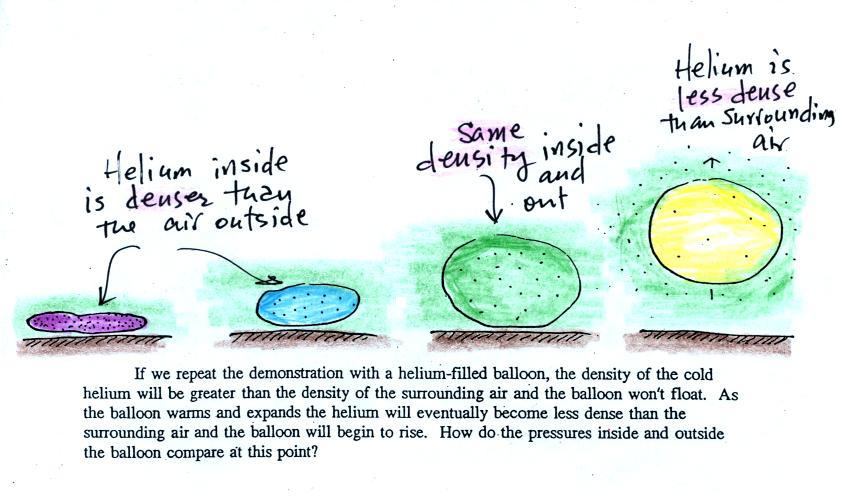 Helium inside
is denser than
the air outside
Same
density inside
and
out
Helium is
less dense
than surrounding
air
If we repeat the demonstration with a helium-filled balloon, the density of the cold
helium will be greater than the density of the surrounding air and the balloon won't float. As
the balloon warms and expands the helium will eventually become less dense than the
surrounding air and the balloon will begin to rise. How do the pressures inside and outside
the balloon compare at this point?